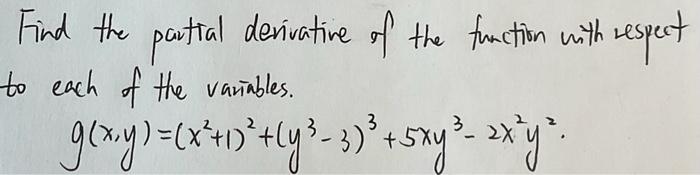 Find the partial derivative of the function with respect
to each of the variables.
g(x,y)=(x²+1)²+(y³-3)³+5xy³-2x²y².